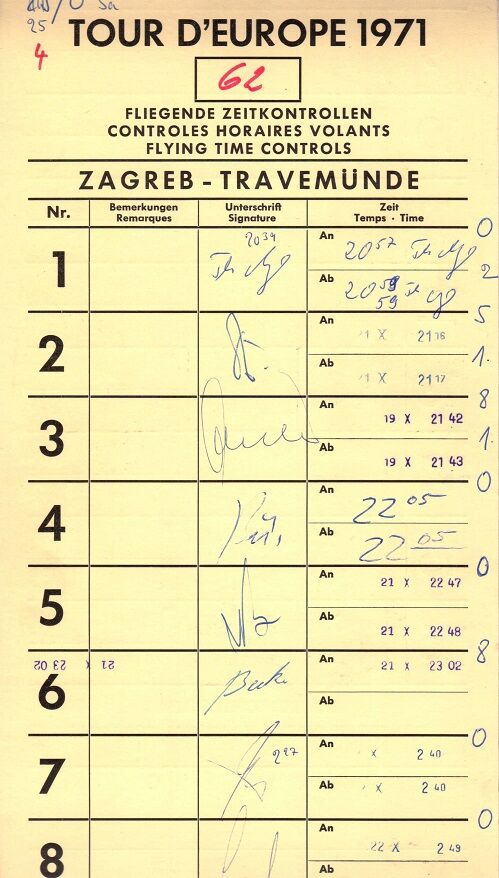 25
4
TOUR D'EUROPE 1971
62
FLIEGENDE ZEITKONTROLLEN
CONTROLES HORAIRES VOLANTS
FLYING TIME CONTROLS
ZAGREB - TRAVEMÜNDE
Nr. Bemerkungen Unterschrift Zeit
Remarques Signature Temps · Time
0
1 2034 An 2057
2
Ab 2059
59
5
2 An 21 X 21 16
1.
Ab 21 X 21 17
8
3 An 19 X 21 42
1.
Ab 19 X 21 43
0
4 An 22 05
Ab 22 05
0
5 An 21 X 22 47
Ab 21 X 22 48
8
21 X 23 02
6 An 21 X 23 02
Ab
0
7 227 An X 2 40
Ab X 2 40
0
8 An 22 X 2 49
Ab